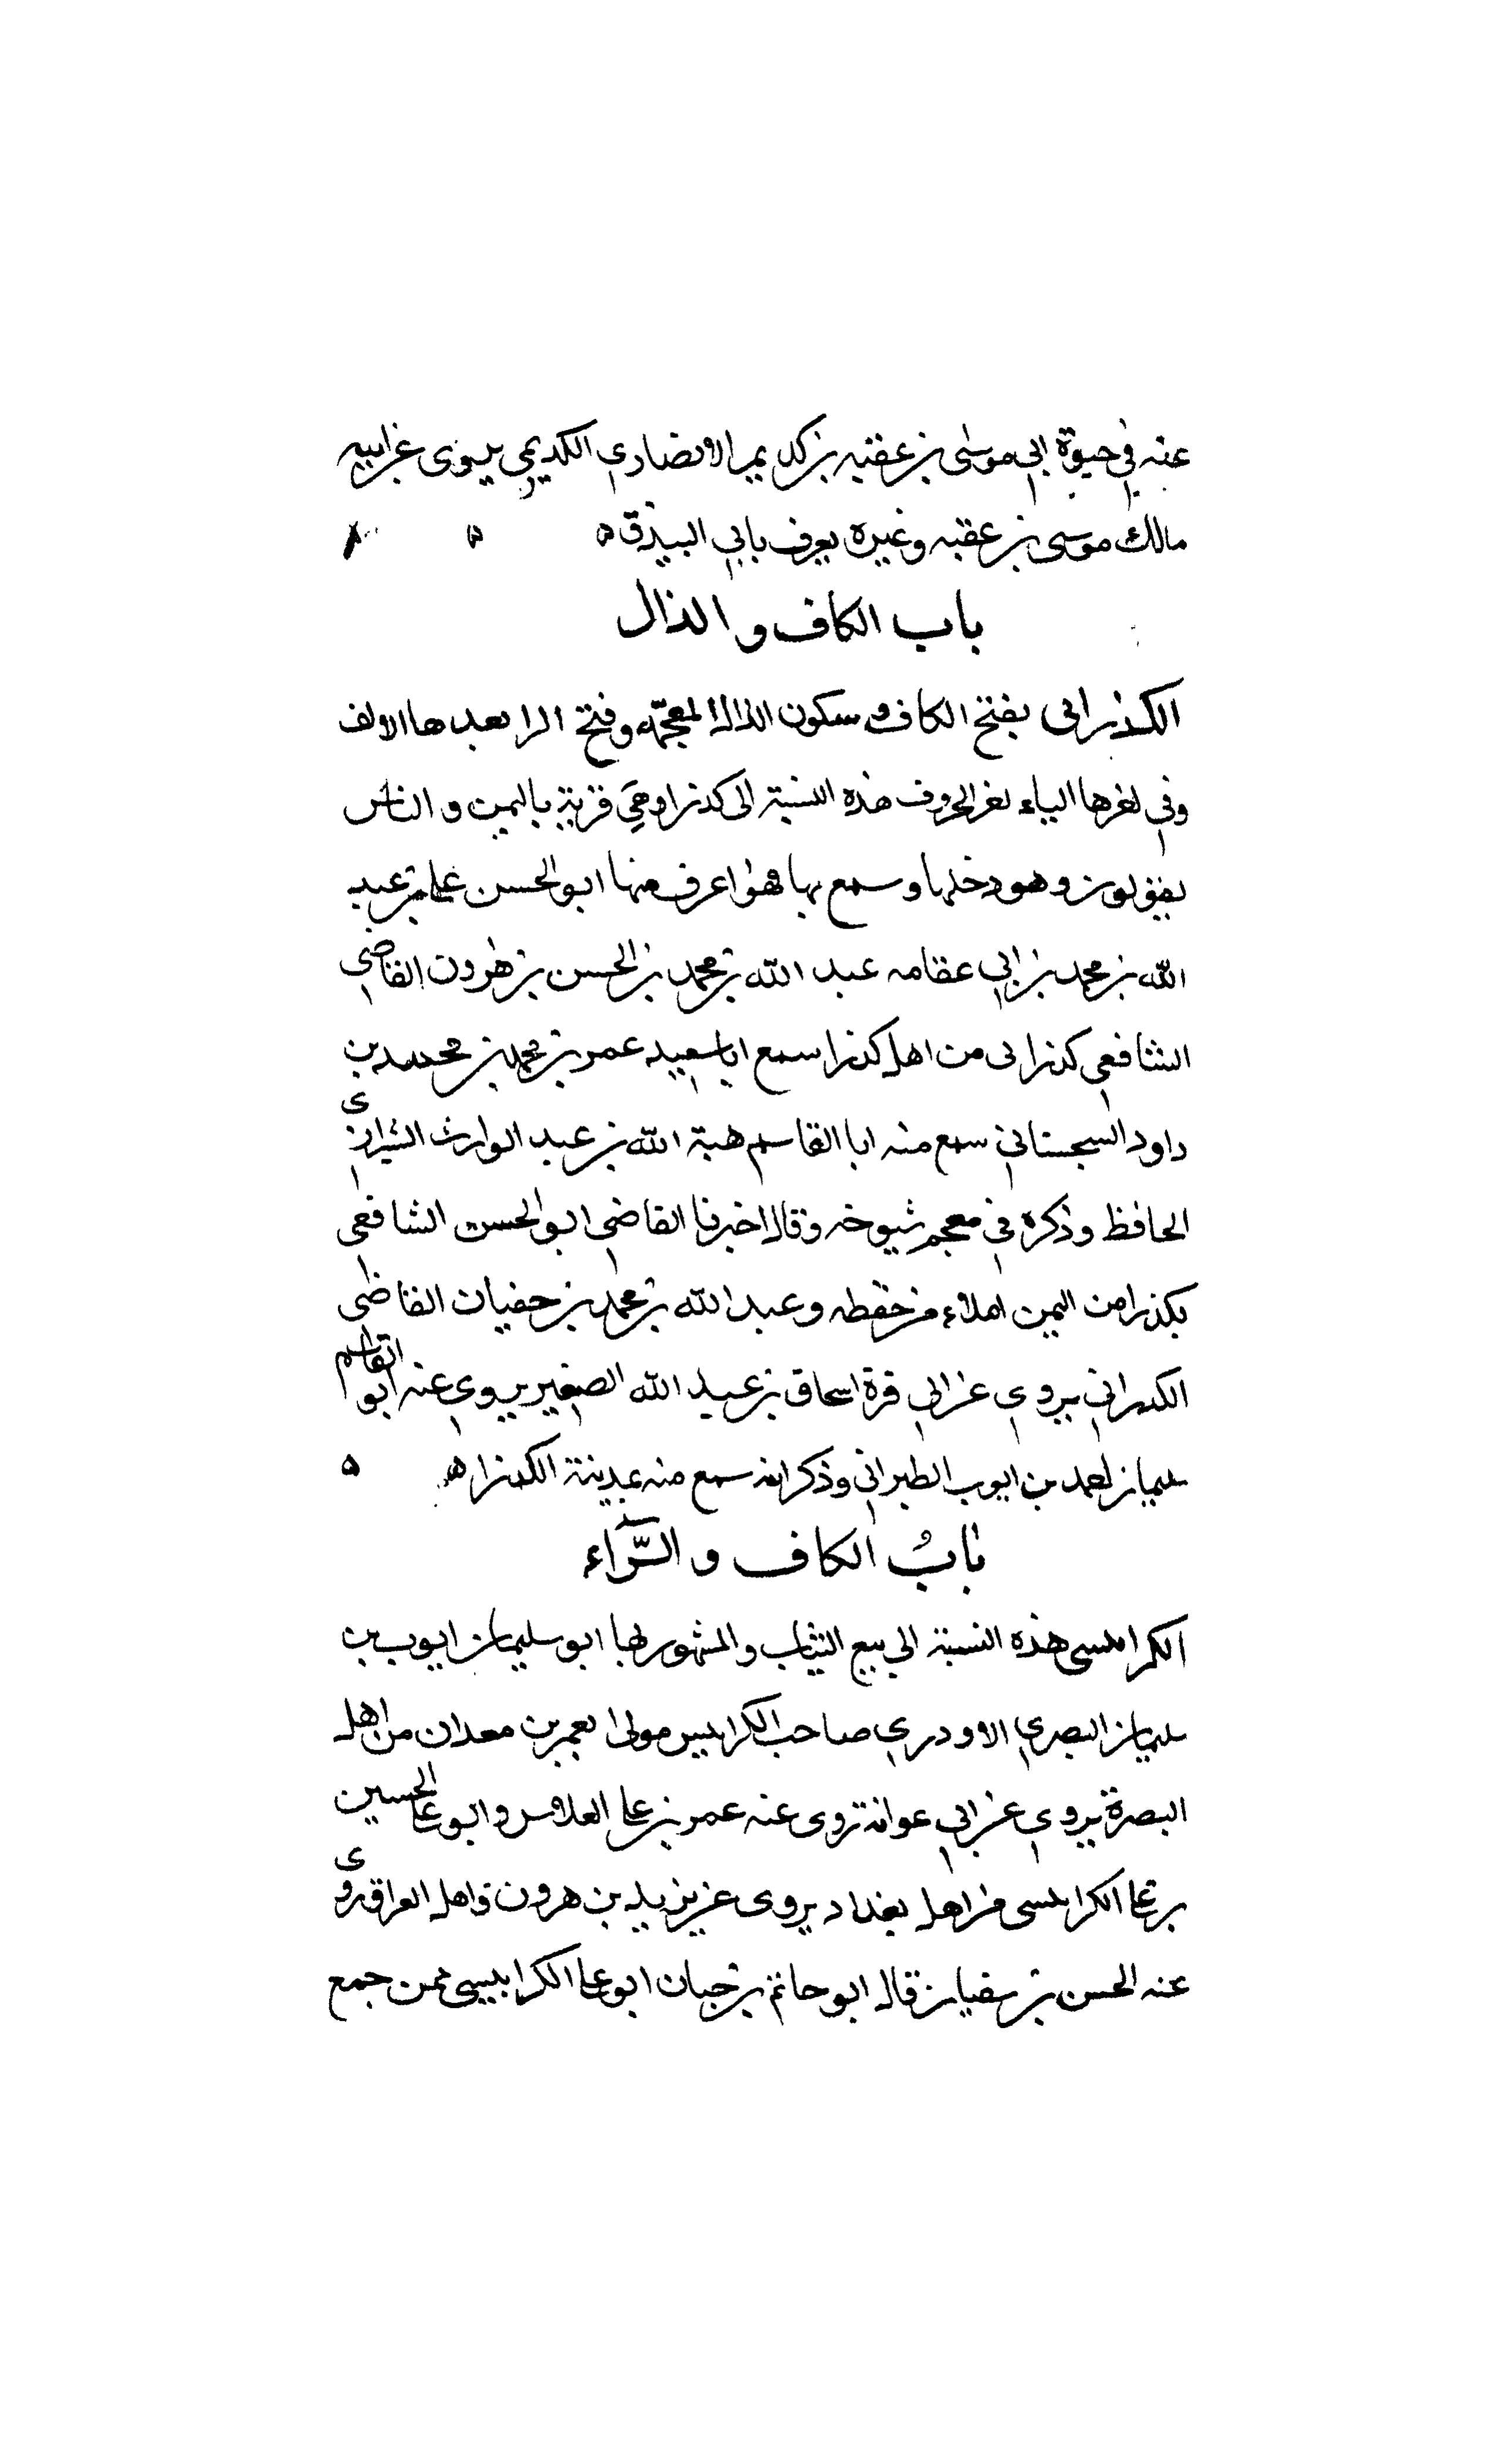 عنه في حيوة ابي موسى بن عقبه بن كديم الانصاري الكديمي يروى عن ابيه
مالك موسى بن عقبه وغيره يعرف بابي البيذق ه ه
باب الكاف والذال
الكذرايى بفتح الكاف وسكون الذال المعجمه وفتح الرا بعدها الالف
وفي اخرها الياء اخر الحروف هذه النسبة الى كدرا وهي قرية باليمن والناس
يقولون وهو دخلها وسمع بها فهو اعرف منها ابو الحسن علي بن عبد
الله بن محمد بن ابي عقامه عبد الله بن محمد بن الحسن بن هرون القاضي
الشافعي كدرايى من اهل كدرا سمع ابا سعيد عمر بن محمد بن محمد بن
داود السجستاني سمع منه ابا القاسم هبة الله بن عبد الوارث الشيرازي
الحافظ وذكره في معجم شيوخه وقال اخبرنا القاضي ابو الحسن الشافعي
بكذرا من اليمن املاء من حفظه وعبد الله بن محمد بن القاضي
الكدراني يروي عن ابي قرة اسحاق بن عبد الله الصغير يروي عنه ابو القاسم
سليمان احمد بن ايوب الطبراني وذكر انه سمع منه بمدينة الكدرا ه ه
باب الكاف والراء
الكرابيسي هذه النسبة الي بيع الثياب والمشهور بها ابو سليمان ايوب بن
سليمان البصري صاحب الكرابيس مولى معمر بن معدان من اهل
البصرة يروي عن ابي عوانة روى عنه عمر بن علي الفلاس وابو علي الحسين
بن علي الكرابيسي من اهل بغداد يروى عن يزيد بن هرون واهل العراق روى
عنه الحسن بن سفيان قال ابو حاتم بن حبان ابو علي الكرابيسي ممن جمع